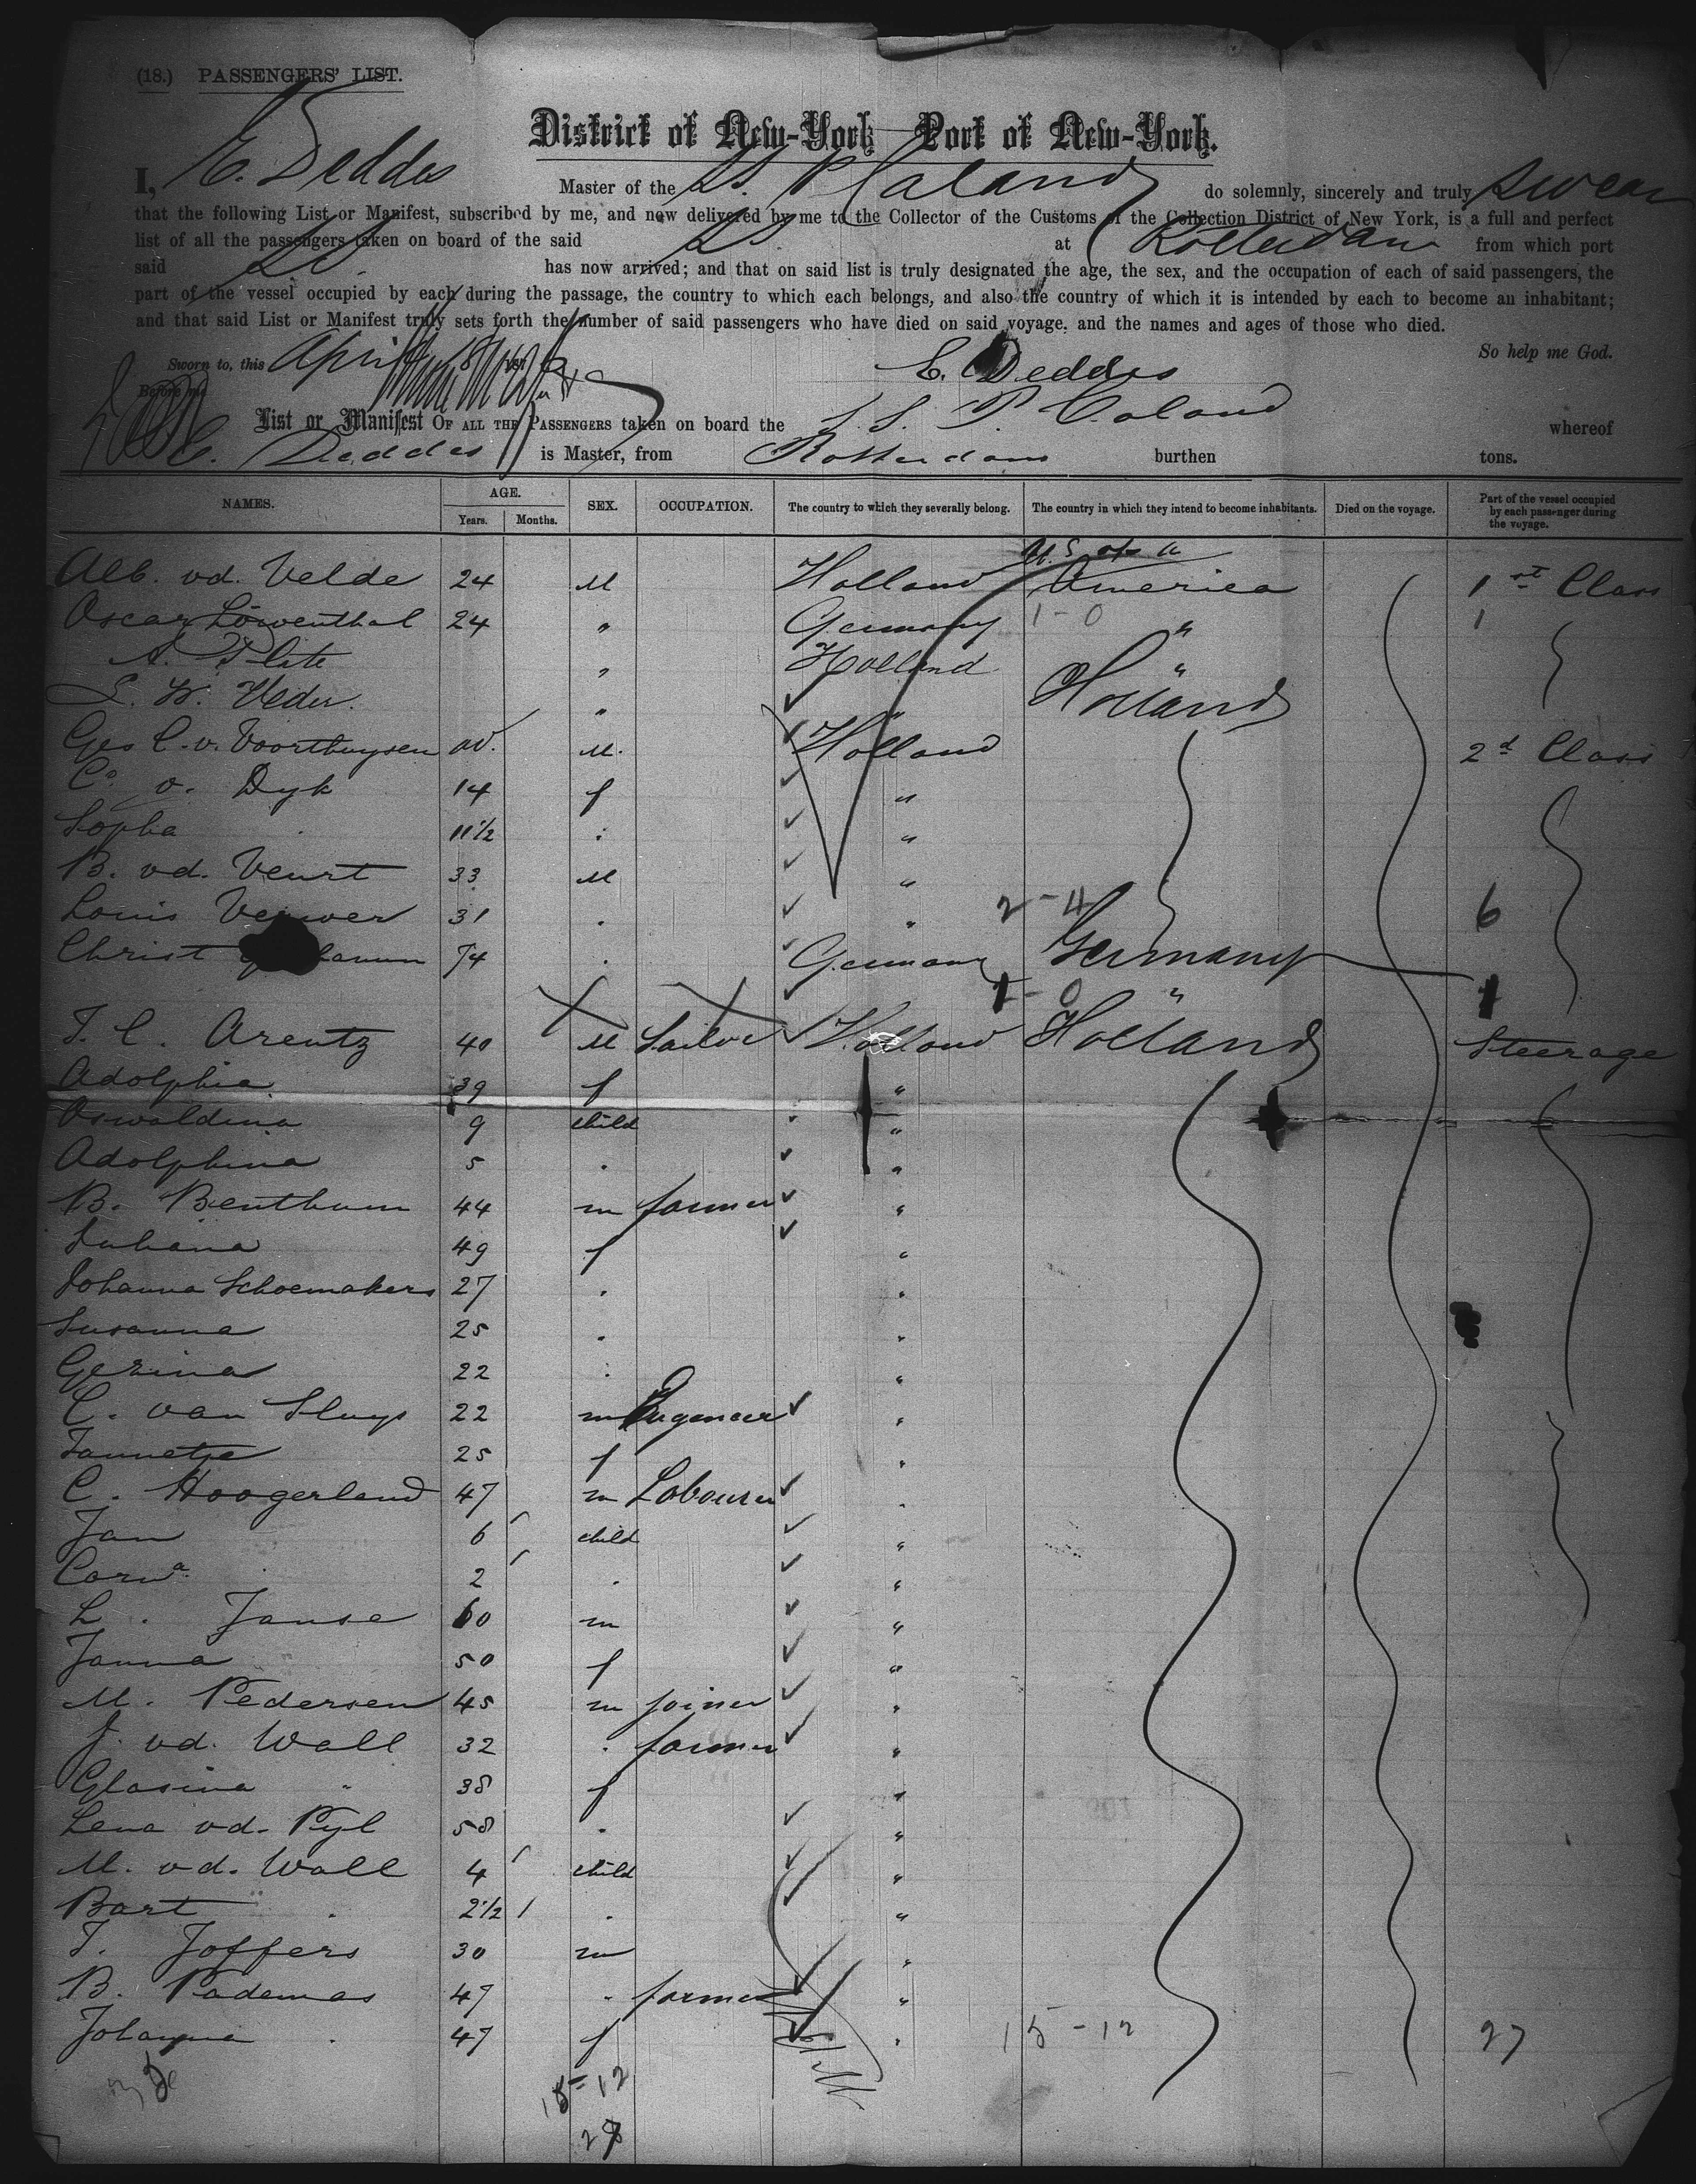 (18.) PASSENGERS' LIST.
District of New-York — Port of New-York.
I, E. Deddes Master of the SS. P Caland do solemnly, sincerely and truly swear
that the following List or Manifest, subscribed by me, and now delivered by me to the Collector of the Customs of the Collection District of New York, is a full and perfect
list of all the passengers taken on board of the said SS. at Rotterdam from which port
said SS. has now arrived; and that on said list is truly designated the age, the sex, and the occupation of each of said passengers, the
part of the vessel occupied by each during the passage, the country to which each belongs, and also the country of which it is intended by each to become an inhabitant;
and that said List or Manifest truly sets forth the number of said passengers who have died on said voyage, and the names and ages of those who died.
So help me God.
Sworn to, this April 18 187
E. Deddes
Before me
List or Manifest OF ALL THE PASSENGERS taken on board the S. S. P. Caland whereof
E. Deddes is Master, from Rotterdam burthen tons.
NAMES. AGE. Years. Months. SEX. OCCUPATION. The country to which they severally belong. The country in which they intend to become inhabitants. Died on the voyage. Part of the vessel occupied by each passenger during the voyage.
U.S. of a
Alb. vd. Velde 24 M Holland America 1st Class
Oscar Löwenthal 24 " Germany 1-0 " 1
A. Plate " Holland "
" " Holland
Geo C. v. Voorthuysen M. Holland 2d Class
C. v. Dyk 14 f "
Sopha 11 1/2 . "
B. vd. Veurt 33 M "
Louis Verwer 31 . " 2-4 6
Christ 74 . Germany Germany 1
1-0 "
T. C. Arentz 40 M Sailor Holland Holland Steerage
Adolphia 39 f "
Oswaldina 9 child "
Adolphina 5 . "
B. Benthum 44 m farmer "
Juhana 49 f "
Johanna Schoemakers 27 . "
Susanna 25 . "
Gerina 22 . "
C. van Sluys 22 m Engeneer "
Jannetje 25 f "
C. Hoogerland 47 m Labourer "
Jan 6 child "
Corna 2 . "
L. Janse 60 m "
Janna 50 f "
M. Pedersen 45 m joiner "
J. vd. Wall 32 . farmer "
Glasina " 38 f "
Lena vd. Pyl 58 . "
M. vd. Wall 4 child "
Bart . 2 1/2 . "
T. Joffers 30 m "
B. Pademas 47 . farmer "
Johanna . 47 f " 15-12 27
15-12
27